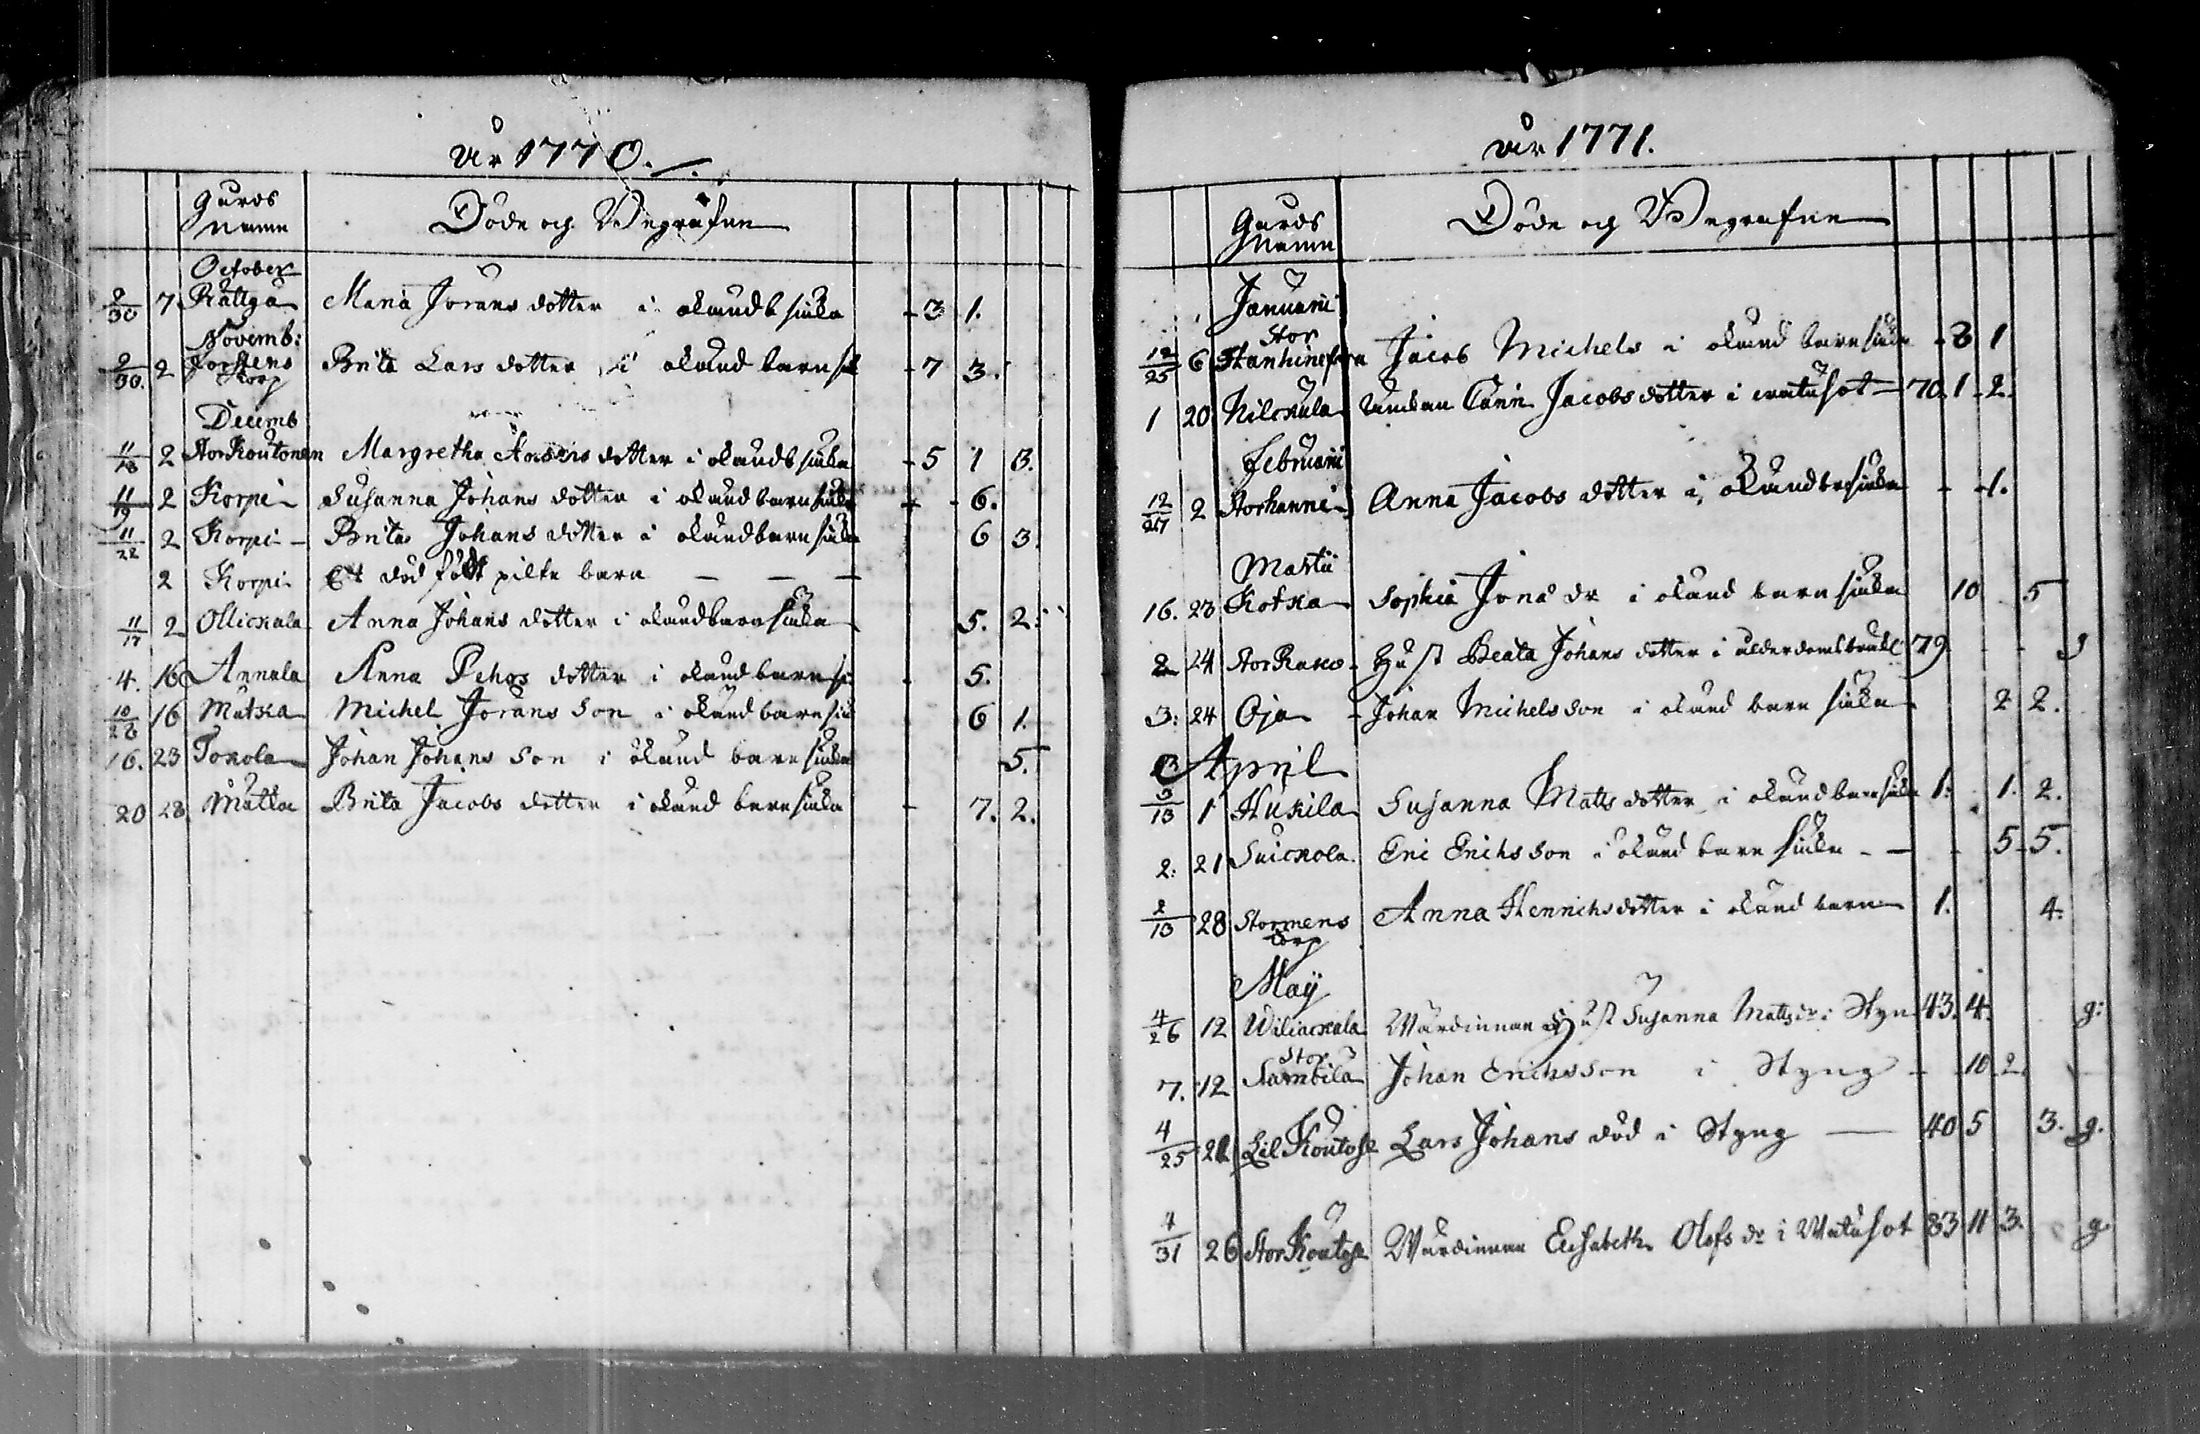 År 1770.
Gårds
Namn
Döde och Begrafne
October
2/30 7 Rättga Maria Jörans dotter i okändt siuka - 3 1.
Novemb:
2/30. 2 Jorstens Brita Lars dotter i okänd barns - 7 3.
Korp
Decemb
11/18 2 Storkoutonen Margretha Anders dotter i okändt siuka - 5 1 3.
11/19 2 Korpi Susanna Johans dotter i okänd barnsiuka - 6.
11/22 2 Korpi Brita Johans dotter i okänd barnsiuka 6 3.
2 Korpi Ett död födt pilte barn — — —
11/17 2 Ollickala Anna Johans dotter i okänd barnsiuka 5. 2:
4. 16 Annala Anna Pehrs dotter i okänd barnsi - 5.
10/28 16 Matka Michel Jörans Son i okänd barnsiu 6 1.
16. 23 Tokola Johan Johans Son i okänd barnsiuka 5.
20 23 Matka Brita Jacobs dotter i okänd barnsiuka - 7. 2.
År 1771.
Gårds
Namn
Döde och Begrafne
Januarii
Stor
12/25 6 Jacob Michels i okänd barnsiuka - 3 1
1 20 Nilckula Enkan Carin Jacobsdotter i watusot 70. 1 2.
Februarii
12/27 2 Storhanni Anna Jacobs dotter i okänd barnsiuka - - 1.
Martii
16. 23 Kotka Sophia Jons dr i okänd barnsiuka 10 5
2 24 Hust Beata Johans dotter i ålderdoms 79 - - g
3: 24 Oja Johan Michels Son i okänd barn siuka 2 2.
April
3/13 1 Hukila Susanna Matts dotter i okänd barnsiuka 1. 1. 2.
2: 21 Suickola Eric Erichs Son i okänd barn siuka - - - 5 5.
2/13 28 Stormens Anna Henrichsdotter i okänd barn 1. 4.
torp
Maÿ
4/26 12 Wiliackala Wärdinnan Hust Susanna Matts dr i Styn 43. 4. g:
Stor
7. 12 Sambila Johan Erichsson i Styng - 10 2.
4/25 21 Lil Koutos Lars Johans död i Styng — 40 5 3. g.
4/31 26 Stor Koutos Wärdinnan Elisabeth Olofs dr i Watusot 83 11 3. g